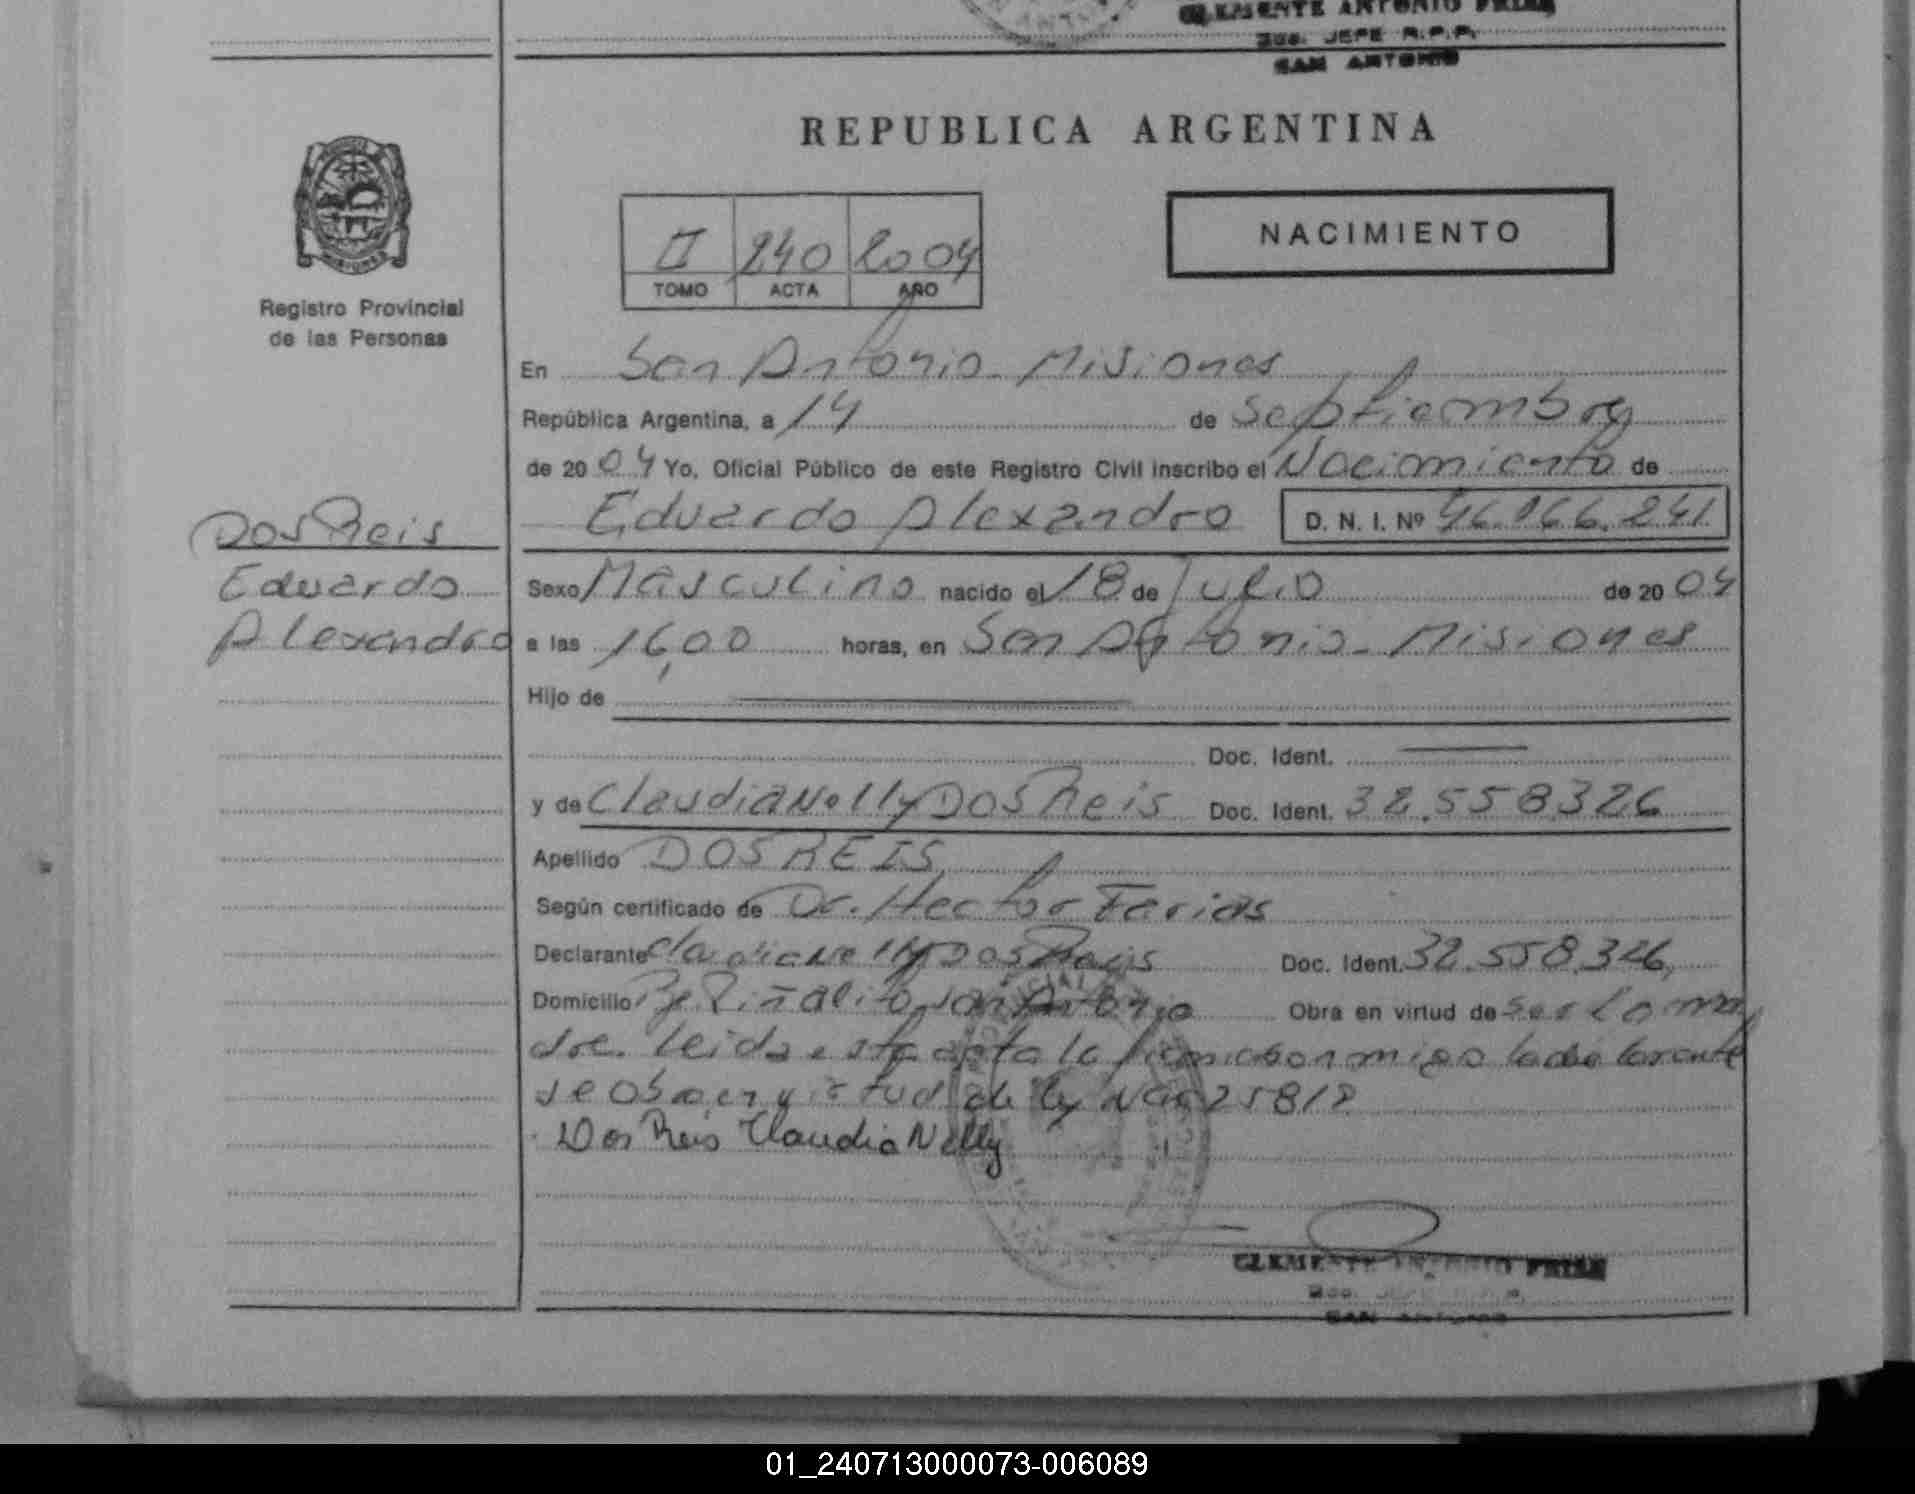 CLEMENTE ANTONIO FRIAS
JEFE R.P.P.
SAN ANTONIO
REPUBLICA ARGENTINA
II 240 2004
TOMO ACTA AÑO
NACIMIENTO
MISIONES
Registro Provincial
de las Personas
En San Antonio - Misiones
República Argentina, a 14 de Septiembre
de 2004 Yo, Oficial Público de este Registro Civil inscribo el Nacimiento de
Eduardo Alexandro D. N. I. Nº 46.166.241
Dos Reis
Eduardo
Alexandro
Sexo Masculino nacido el 18 de Julio de 2004
a las 16,00 horas, en San Antonio - Misiones
Hijo de
Doc. Ident.
y de Claudia Nelly Dos Reis Doc. Ident. 32.558.326
Apellido DOS REIS
Según certificado de Dr. Hector Farias
Declarante Claudia Nelly Dos Reis Doc. Ident. 32.558.326
Domicilio Piñalito San Antonio Obra en virtud de ser la ma
dre. Leida esta acta la firma conmigo la declarante
se obra en virtud de ley 25818
Dos Reis Claudia Nelly
CLEMENTE ANTONIO FRIAS
SAN ANTONIO
01_240713000073-006089